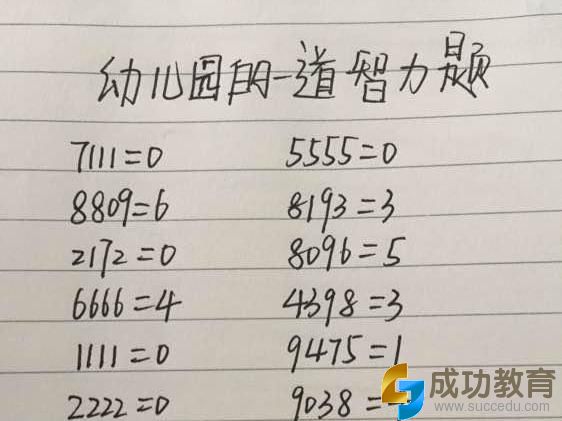 幼儿园的一道智力题
7111=0 5555=0
8809=6 8193=3
2172=0 8096=5
6666=4 4398=3
1111=0 9475=1
2222=0 9038=
成功教育
www.succedu.com